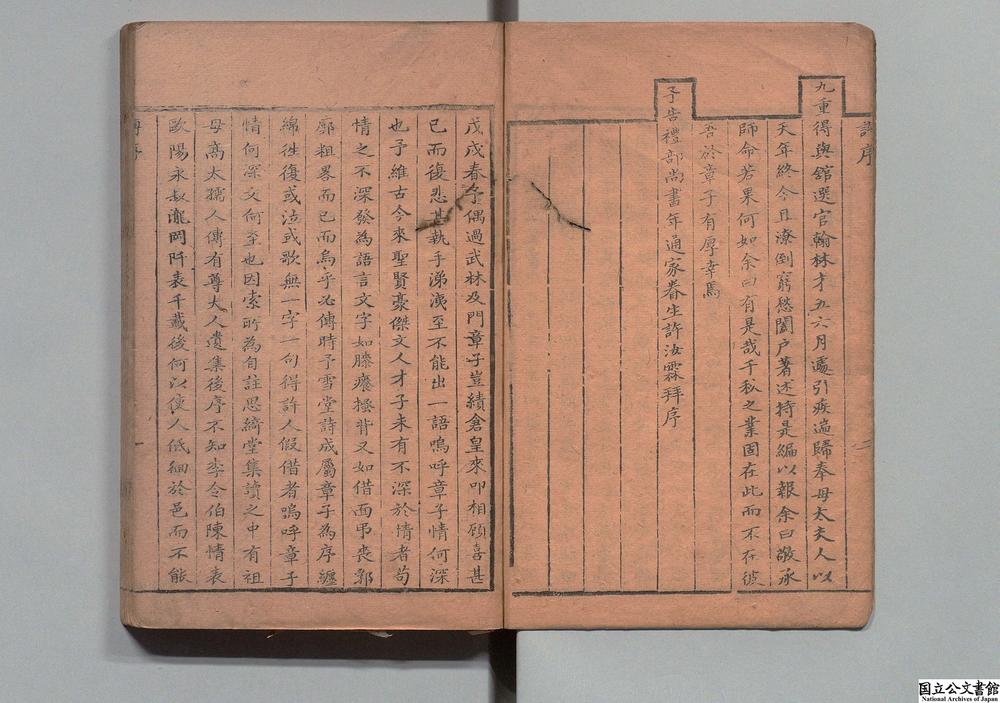 許序
九重得與舘選官翰林才五六月遽引疾遄歸奉母太夫人以
天年終今且潦倒窮愁闔户著述持是編以報余曰敬承
師命若果何如余曰有是哉千秋之業固在此而不在彼
吾於章子有厚幸焉
予告禮部尚書年通家眷生許汝霖拜序
二
戊戌春予偶過武林及門章子豈績倉皇來叩相顧喜甚
已而復悲甚執手涕洟至不能出一語嗚呼章子情何深
也予維古今來聖賢豪傑文人才子未有不深於情者苟
情之不深發為語言文字如膝癢搔背又如借面弔喪郛
廓粗畧而已而烏乎必傳時予雪堂詩成屬章子為序纏
綿徃復或泣或歌無一字一句得許人假借者嗚呼章子
情何深文何至也因索所為自註思綺堂集讀之中有祖
母高太孺人傳有尊大人遺集後序不知李令伯陳情表
歐陽永叔瀧岡阡表千載後何以使人低細於邑而不能
序
一
国立公文書館
National Archives of Japan